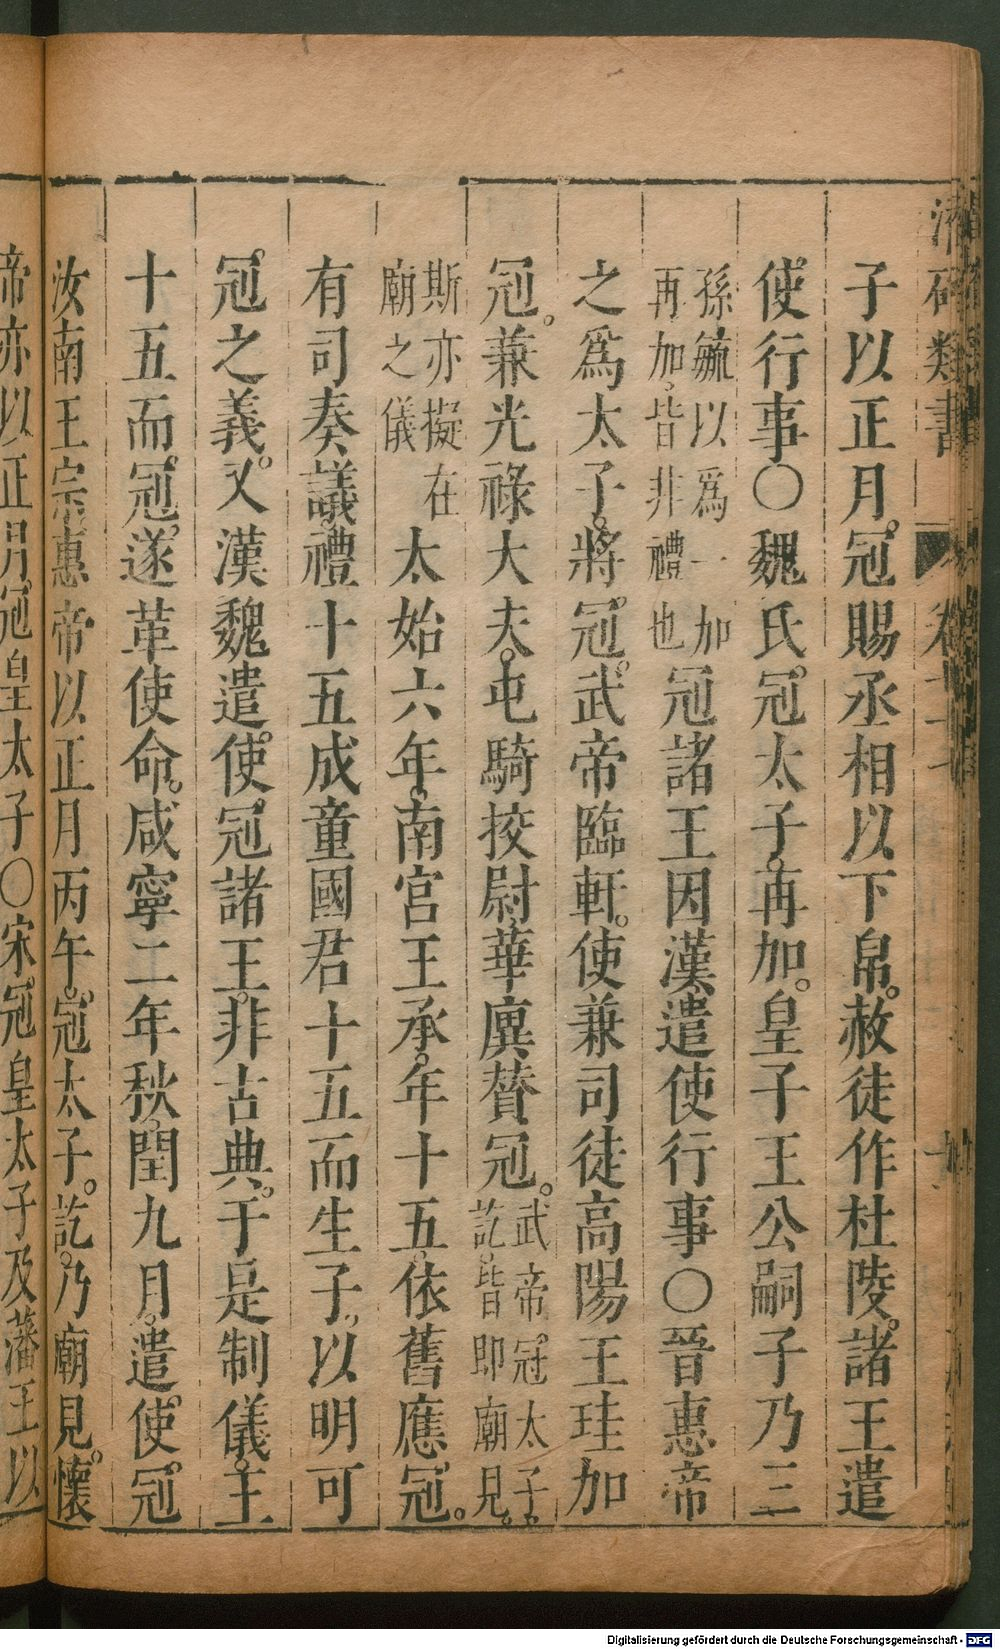 子以正月冠賜丞相以下帛赦徒作杜陵諸王遣
使行事○魏氏冠太子再加皇子王公嗣子乃三
孫毓以爲一加
再加皆非禮也
冠諸王因漢遣使行事○晉惠帝
之爲太子將冠武帝臨軒使兼司徒高陽王珪加
冠兼光祿大夫屯騎挍尉華廙贊冠
武帝冠太子
訖皆即廟見
斯亦擬在
廟之儀
太始六年南宮王承年十五依舊應冠
有司奏議禮十五成童國君十五而生子以明可
冠之義又漢魏遣使冠諸王非古典于是制儀王
十五而冠遂革使命咸寧二年秋閏九月遣使冠
汝南王宗惠帝以正月丙午冠太子訖乃廟見懷
帝亦以正月冠皇太子○宋冠皇太子及藩王以
Digitalisierung gefördert durch die Deutsche Forschungsgemeinschaft - DFG